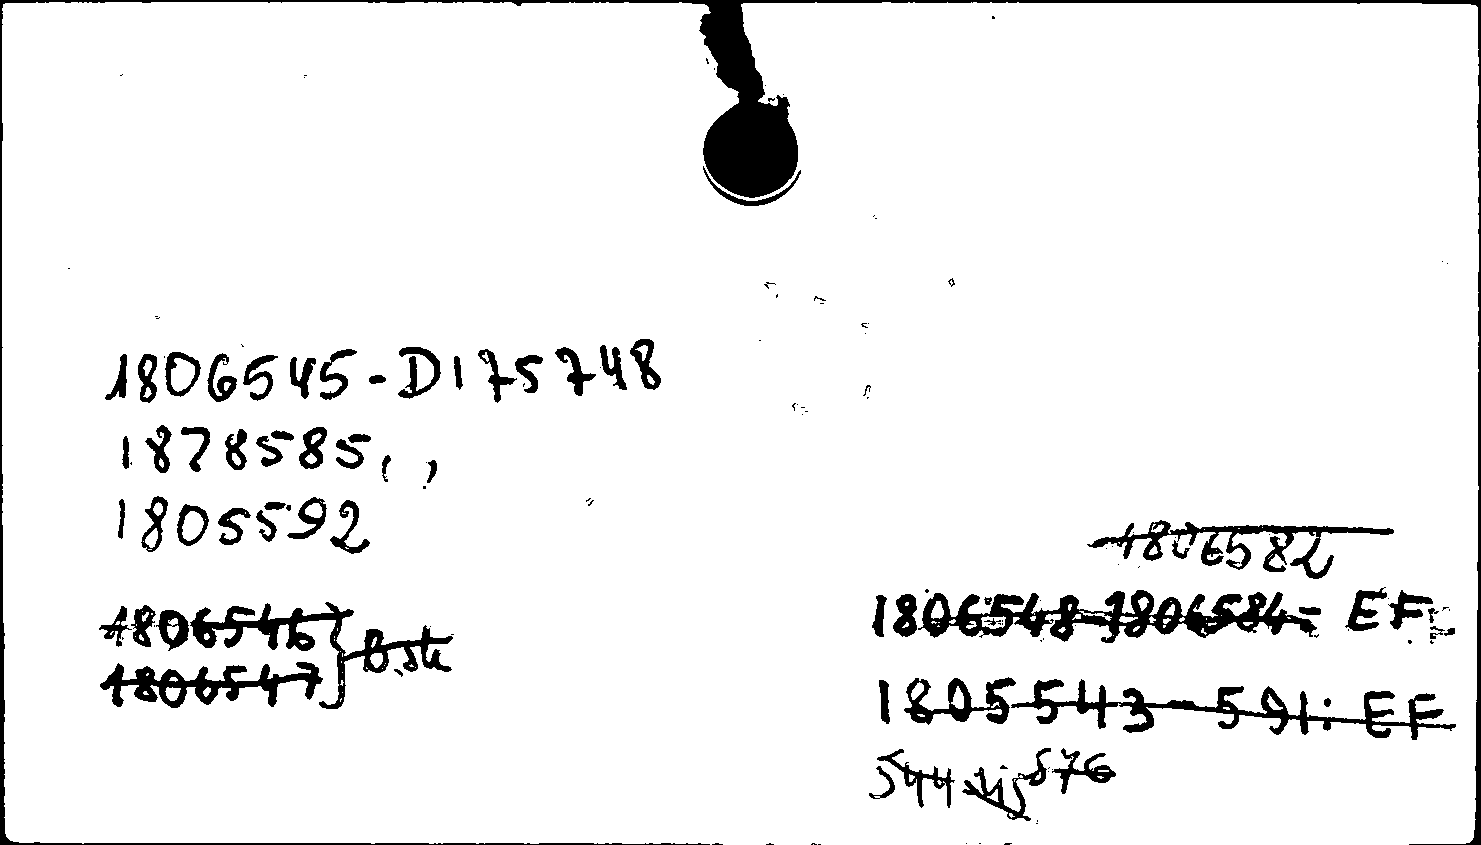 1806545-D175748
1878585, ,
1805592
1806546
1806547
1806582
1806548-1806584= EF
1805543-591: EF
544 576